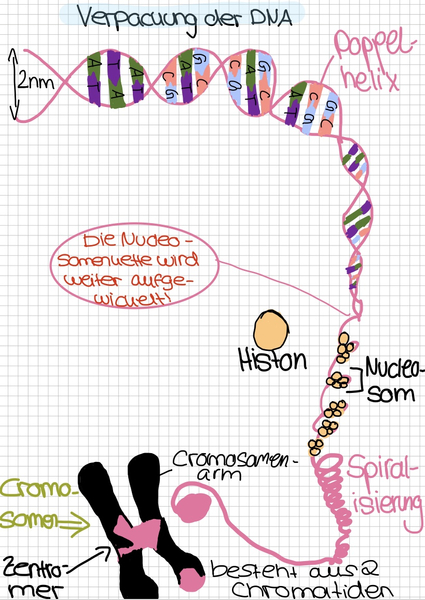 Verpackung der DNA
2nm
A T A
T A T
C A G
G T C
C G A
G C T
A G C
T C G
Doppel-
helix
Die Nucleo-
somenkette wird
weiter aufge-
wickelt!
Histon
Nucleo-
som
Cromosomen-
arm
Spiral-
isierung
Cromo-
somen
Zentro-
mer
besteht aus 2
Chromatiden